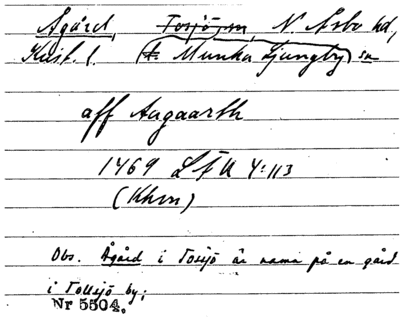 Ågård, Tosjö, sn, N. Åsbo hd,
Krist. l. (A. Munka Ljungby) sn
aff Aagaarth
1469 LFU 4:113
(Khvn)
Obs. Ågård i Tossjö är namn på en gård
i Tossjö by;
Nr 5504.